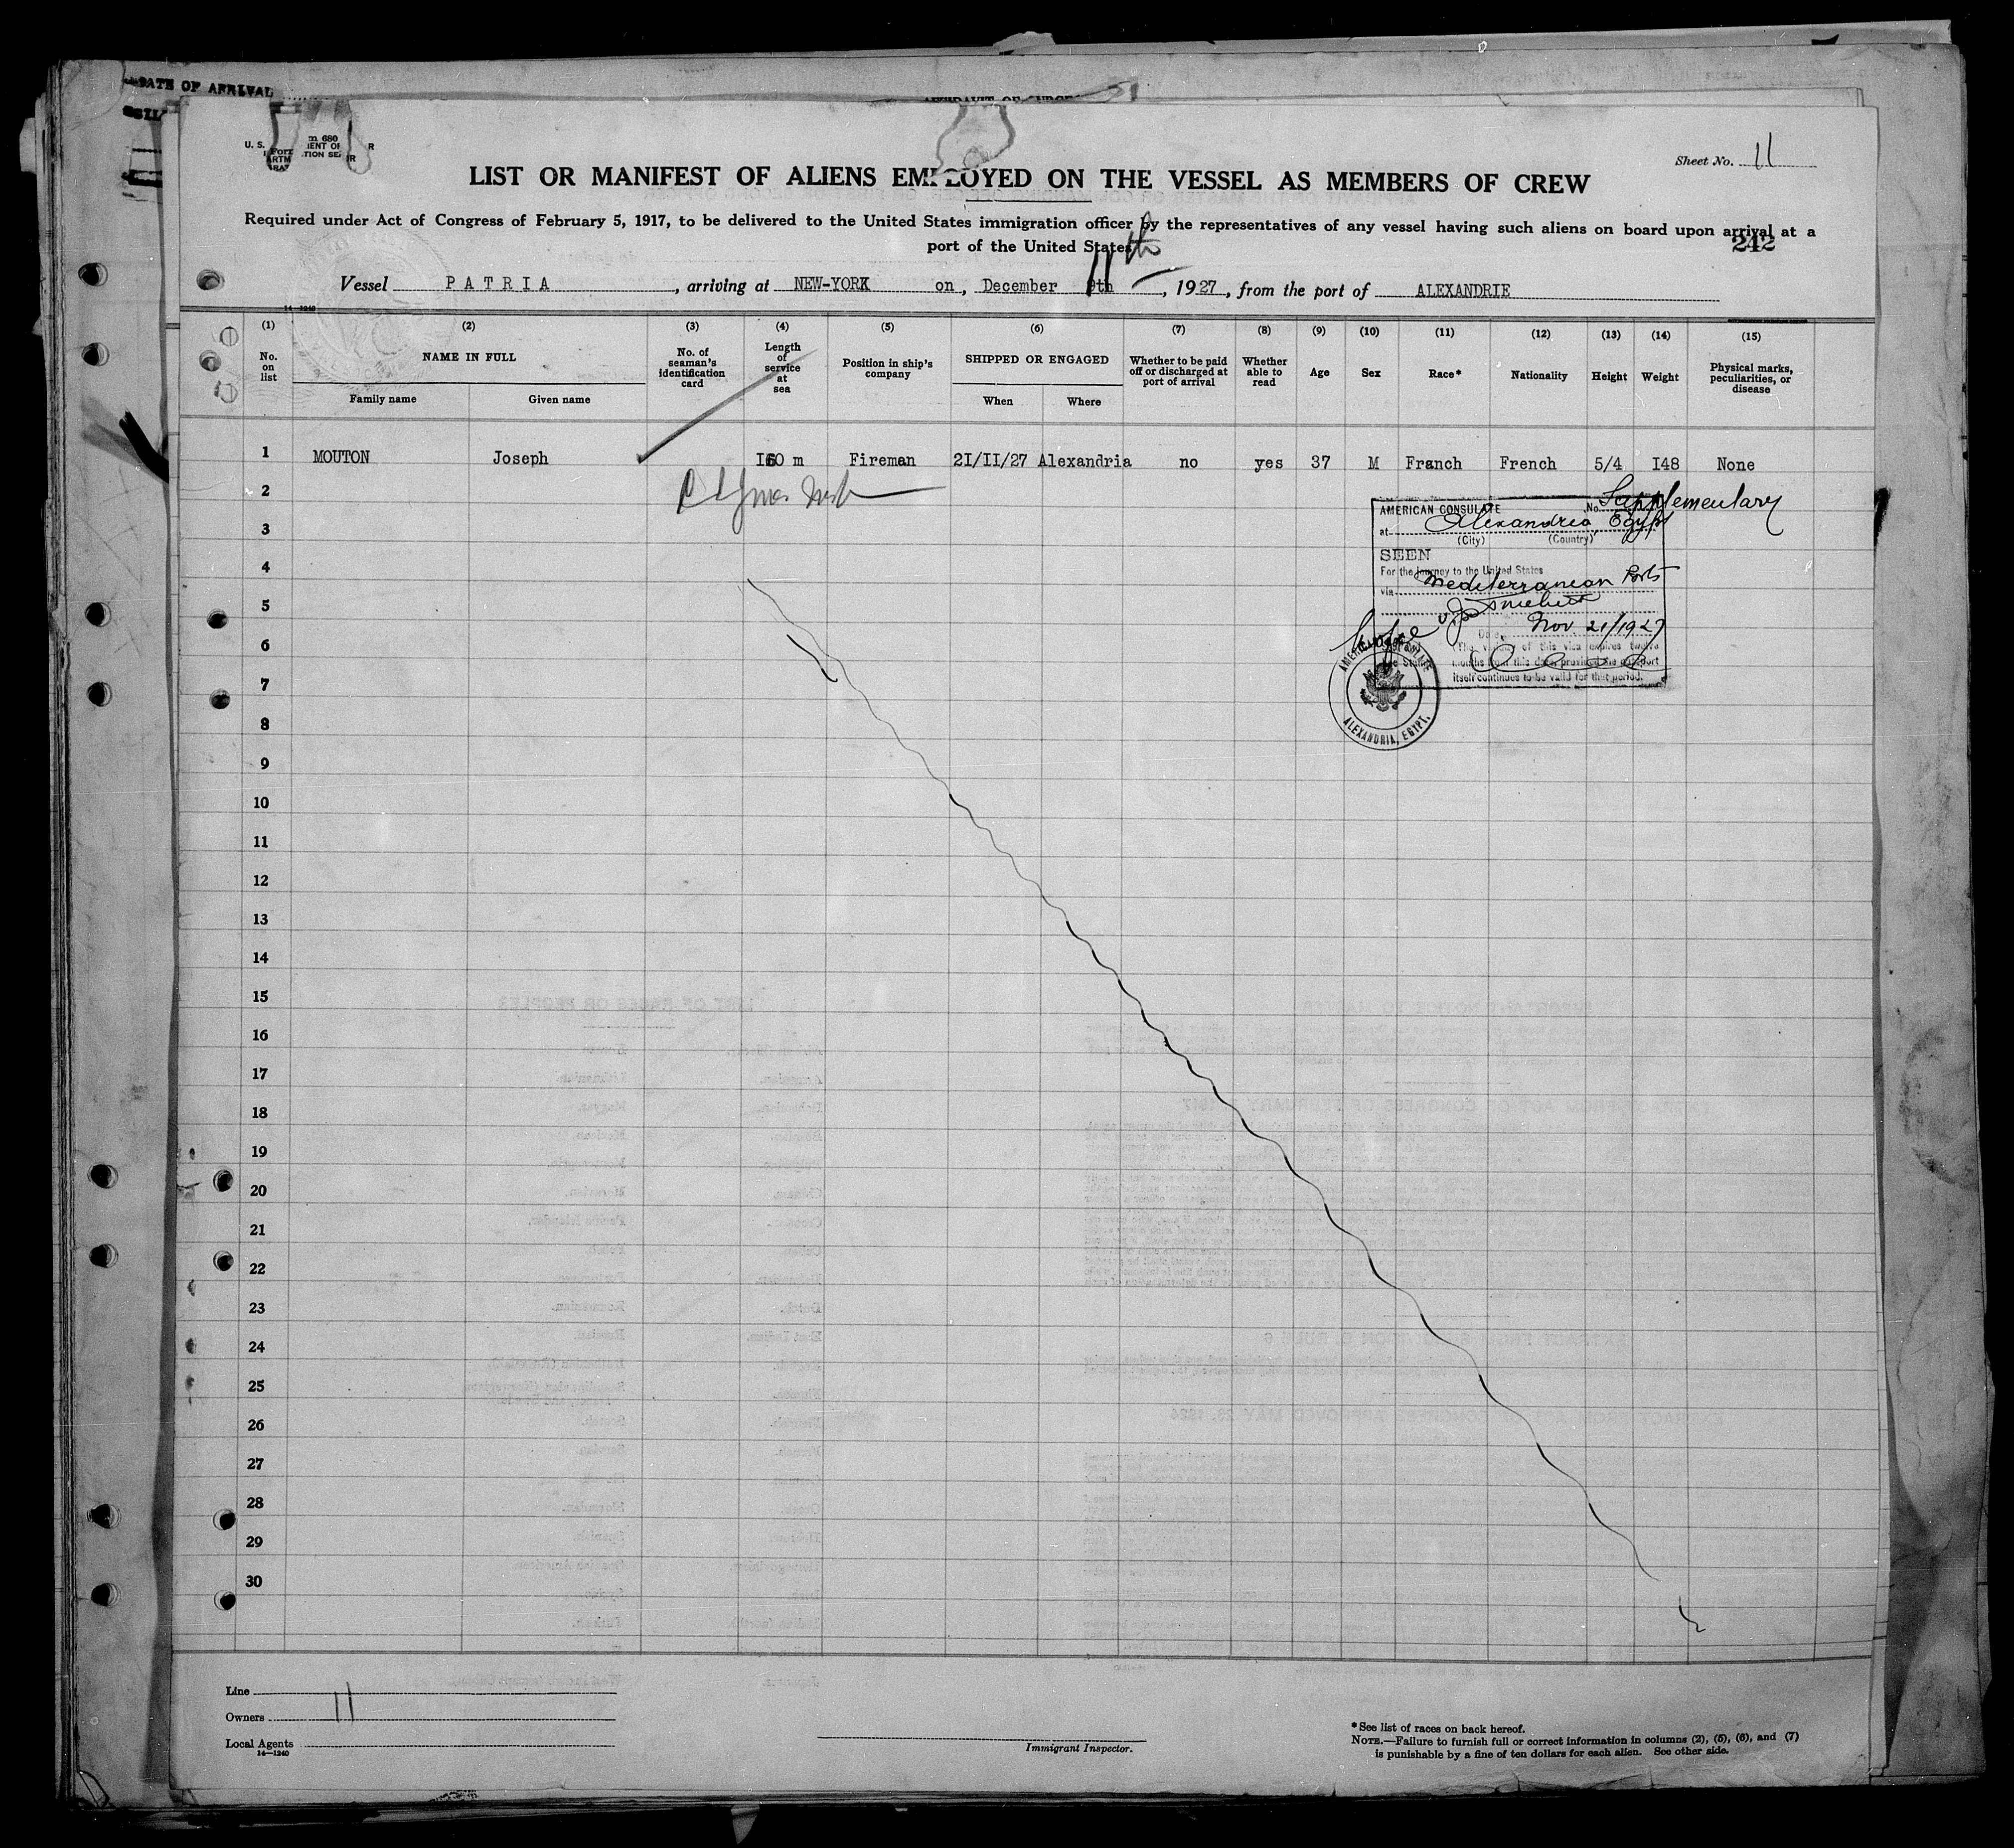 DATE OF ARRIVAL
U. S.
Sheet No. 11
LIST OR MANIFEST OF ALIENS EMPLOYED ON THE VESSEL AS MEMBERS OF CREW
Required under Act of Congress of February 5, 1917, to be delivered to the United States immigration officer by the representatives of any vessel having such aliens on board upon arrival at a
port of the United States
242
Vessel PATRIA, arriving at NEW-YORK on, December 9th 11th, 1927, from the port of ALEXANDRIE
14—1240
(1) (2) (3) (4) (5) (6) (7) (8) (9) (10) (11) (12) (13) (14) (15)
No. on list
NAME IN FULL
Family name Given name
No. of seaman's identification card
Length of service at sea
Position in ship's company
SHIPPED OR ENGAGED
When Where
Whether to be paid off or discharged at port of arrival
Whether able to read
Age
Sex
Race*
Nationality
Height
Weight
Physical marks, peculiarities, or disease
1 MOUTON Joseph 60 m Fireman 2I/II/27 Alexandria no yes 37 M Franch French 5/4 I48 None
2
3
4
5
6
7
8
9
10
11
12
13
14
15
16
17
18
19
20
21
22
23
24
25
26
27
28
29
30
AMERICAN CONSULATE No. Supplementary
at Alexandria Egypt
(City) (Country)
SEEN
For the journey to the United States
via Mediterranean Ports
Date Nov 21/1927
(The validity of this visa expires twelve
months from this date provided the passport
itself continues to be valid for this period.
AMERICAN CONSULATE
ALEXANDRIA, EGYPT.
Line
Owners 11
Local Agents
14—1240
Immigrant Inspector.
*See list of races on back hereof.
NOTE.—Failure to furnish full or correct information in columns (2), (5), (6), and (7)
is punishable by a fine of ten dollars for each alien. See other side.